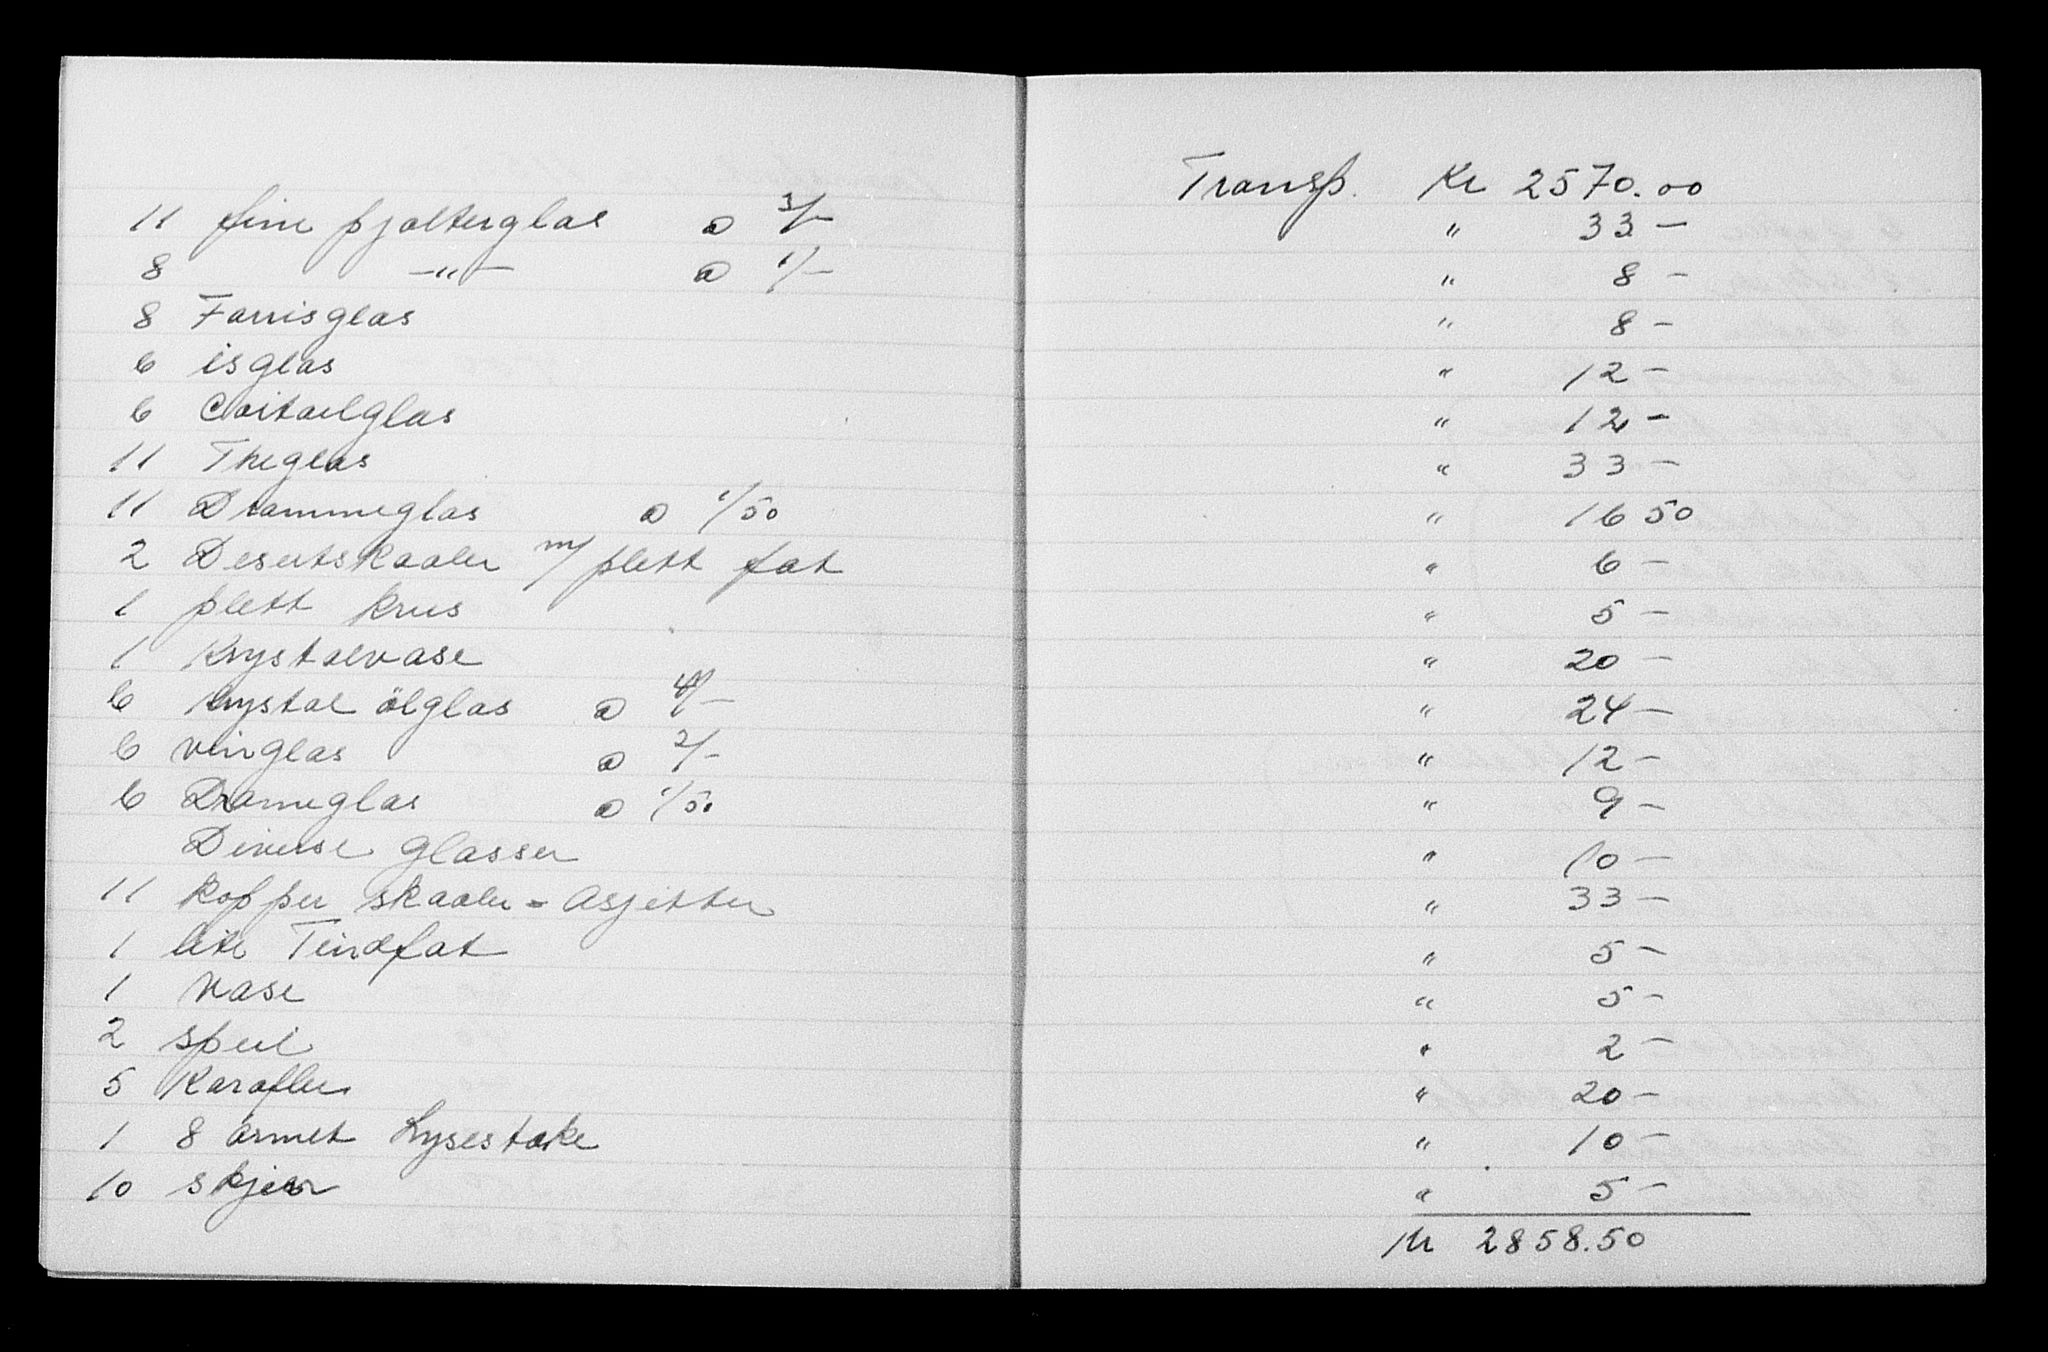 Transp. Kr 2570.00
11 fine pjolterglas a 3/- " 33 -
8 -"- a 1/- " 8 -
8 Farrisglas " 8 -
6 isglas " 12 -
6 Coitailglas " 12 -
11 Theglas " 33 -
11 Drammeglas a 1/50 " 16 50
2 Desertskaaler m/ plett fat " 6 -
1 plett krus " 5 -
1 Krystalvase " 20 -
6 krystal ölglas a 4/- " 24 -
6 vinglas a 2/- " 12 -
6 Drameglas a 1/50 " 9 -
Diverse glasser " 10 -
11 kopper skaaler - asjetter " 33 -
1 lite Tindfat " 5 -
1 vase " 5 -
2 speil " 2 -
5 Karafler " 20 -
1 8 armet Lysestake " 10 -
10 skjeer " 5 -
Kr 2858.50